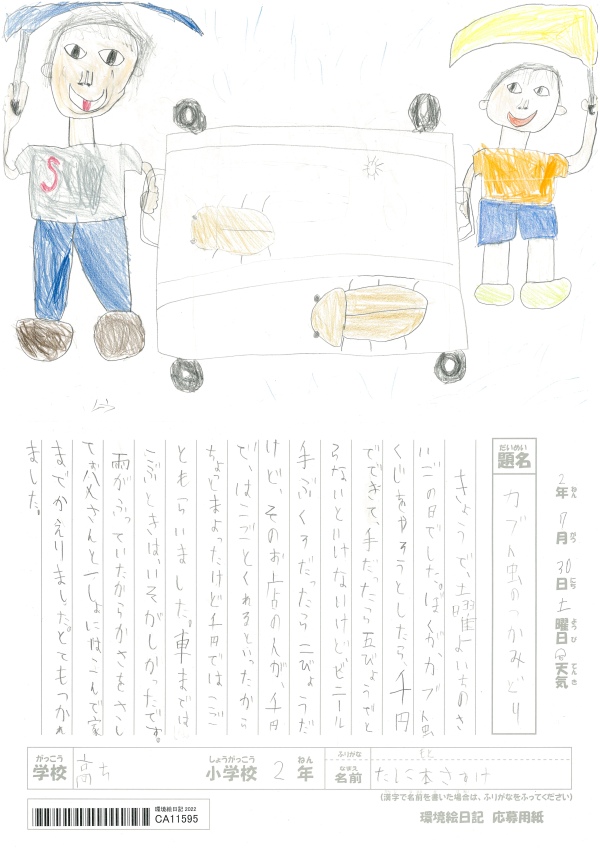 S
2年 7月 30日 土曜日 天気
ねん がつ にち ようび てんき
だいめい
題名
カブト虫のつかみどり
きょうで、土曜よいちのさ
いごの日でした。ぼくが、カブト虫
くじをやろうとしたら千円
でできて、手だったら五びょうでと
らないといけないけどビニール
手ぶくろだったら二びょうだ
けど、そのお店の人が、千円
で、はこごとくれるといったから
ちょとまよったけど千円ではこご
ともらいました。車まではこ
こぶときは、いそがしかったです。
雨がふっていたからかさをさし
てお父さんと一しょにはこんで家
までかえりました。とてもつかれ
ました。
がっこう
学校
高ち
しょうがっこう
小学校
2
ねん
年
ふりがな
もと
なまえ
名前
(漢字で名前を書いた場合は、ふりがなをふってください)
環境絵日記 2022
CA11595
環境絵日記 応募用紙